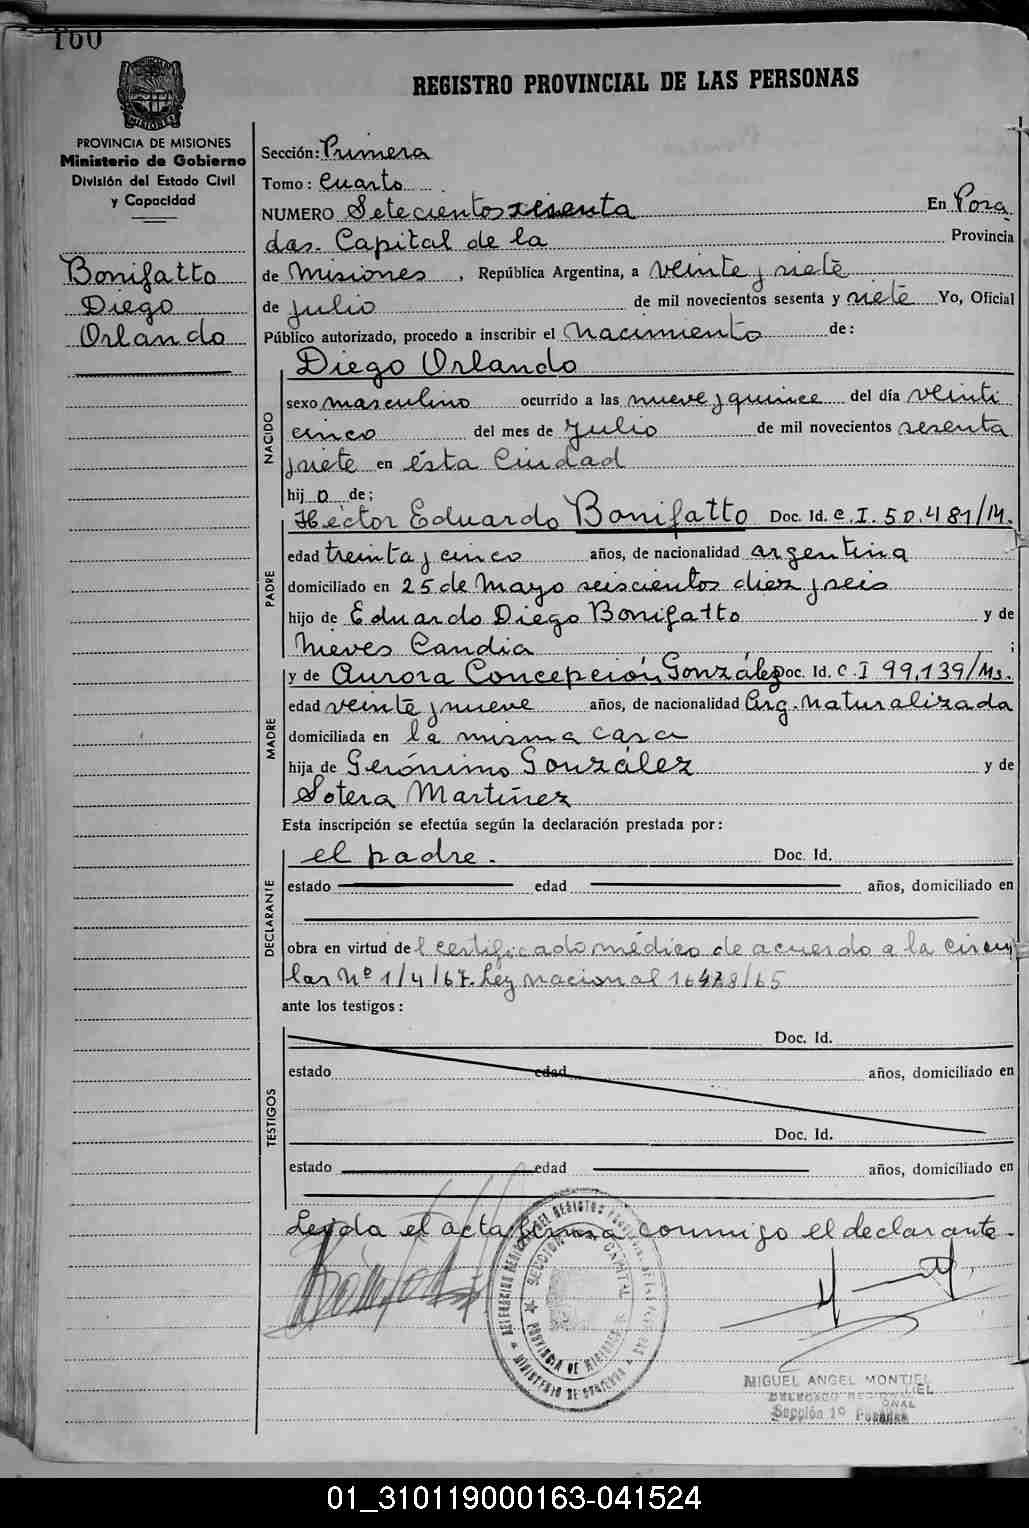 160
REGISTRO PROVINCIAL DE LAS PERSONAS
PROVINCIA DE MISIONES
Ministerio de Gobierno
División del Estado Civil
y Capacidad
Bonifatto
Diego
Orlando
Sección: Primera
Tomo: Cuarto
NUMERO Setecientos sesenta En Posa
das. Capital de la Provincia
de Misiones, República Argentina, a veinte y siete
de Julio de mil novecientos sesenta y siete Yo, Oficial
Público autorizado, procedo a inscribir el Nacimiento de:
NACIDO
Diego Orlando
sexo masculino ocurrido a las nueve y quince del día veinti
cinco del mes de Julio de mil novecientos sesenta
y siete en ésta Ciudad
hijo de;
PADRE
Héctor Eduardo Bonifatto Doc. Id. C.I. 50.481/M.
edad treinta y cinco años, de nacionalidad argentina
domiciliado en 25 de Mayo seiscientos diez y seis
hijo de Eduardo Diego Bonifatto y de
Nieves Candia ;
MADRE
y de Aurora Concepción González Doc. Id. C.I 99.139/Ms.
edad veinte y nueve años, de nacionalidad Arg. Naturalizada
domiciliada en la misma casa
hija de Gerónimo González y de
Sotera Martínez
Esta inscripción se efectúa según la declaración prestada por:
DECLARANTE
el padre. Doc. Id.
estado edad años, domiciliado en
obra en virtud del certificado médico de acuerdo a la circu
lar Nº 1/4/67. Ley nacional 16478/65
ante los testigos:
TESTIGOS
Doc. Id.
estado edad años, domiciliado en
Doc. Id.
estado edad años, domiciliado en
Leyda el acta firma conmigo el declarante.
SECCION CAPITAL
PROVINCIA DE MISIONES
MINISTERIO DE GOBIERNO
MIGUEL ANGEL MONTIEL
DELEGADO REGIONAL
Sección 1º Posadas
01_310119000163-041524